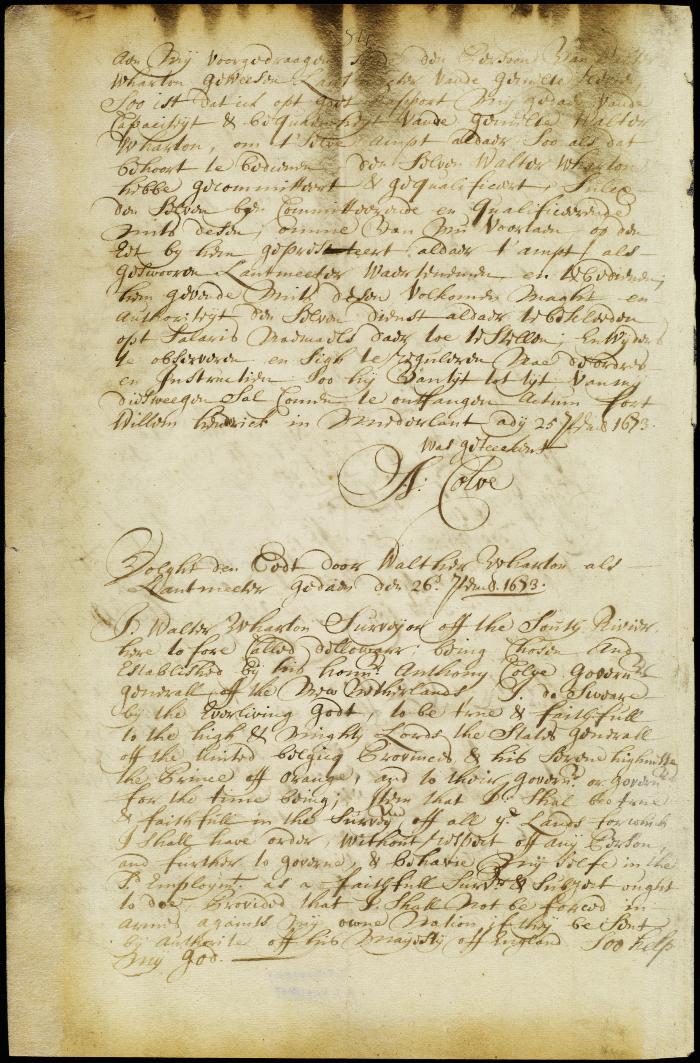 54
Aen Mij voorgedraagen den Persoon van
Wharton geweesen Landtmeeter vande gemelte Rivier,
Soo ist dat ick opt goet Rapport Mij gedaen vande
Capaciteijt & bequaemheijt vande gemelte Walter
Wharton, om t'selve Ampt aldaer Soo als dat
behoort te bedienen den selven Walter Wharton
hebbe gecommitteert & gequalificeert,
den selven by Committeerende en Qualificeerende
mits desen, omme van nu voortaen op den
Eet by hem gepresteert aldaer t'ampt als
geswooren Lantmeeter waertenemen en te bedienen,
hem gevende mits desen volkomen Maght en
Authoriteijt den selven dienst aldaer te bekleeden
opt Salaris Naemaels daer toe te stellen; En wyders
te observeren en sigh te reguleren Nae de ordres
en Instructien Soo hij van tijt tot tijt van mij
diesweegen Sal Comen te ontfangen Actum fort
Willem hendrick in N: Nederlant ady 25 7ber 1673.
Was geteeckent
A: Colve
Volght den Eedt door Walther Wharton als
Lantmeeter gedaen den 26: 7ber 1673.
I Walter Wharton Surveyor off the South Rivier
here to fore Called dellowarr; being Chosen And
Established by his honnr. Anthony Colve Govern
Generall off the New Netherlands I do Sweare
by the Everliving Godt, to be true & faithfull
to the high & Mighty Lords the States Generall
off the United belgicq Provinces & his Serene highnisse
the Prince off orange, and to their governr. or Govern
for the time being; Item that I Shal bee true
& faithfull in the Survey off all ye. Lands for which
I shall have order, without respect off any Person,
and further to governe, & behavie my selfe in the
Sd. Employmt. as a faithfull Survr. & Subject ought
to doe; Provided that I shall Not be forced in
armes againts my owne Nation if thy be Sent
by Authorite off his Majesty off England Soo help
My God.